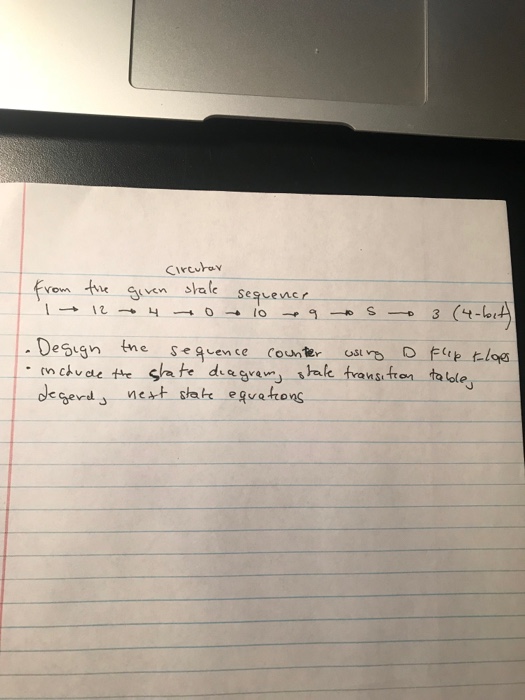 circular
from the given state sequence
1 → 12 → 4 → 0 → 10 → 9 → 5 → 3 (4-bit)
• Design the sequence counter using D Flip Flops
• include the state diagram, state transition table,
legend, next state equations